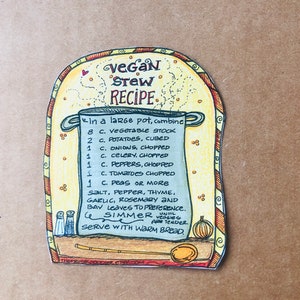 VEGAN
STEW
RECIPE
In a large pot, combine
8 C. VEGETABLE STOCK
2 C. POTATOES, CUBED
1 C. ONIONS, CHOPPED
1 C. CELERY, CHOPPED
1 C. PEPPERS, CHOPPED
1 C. TOMATOES CHOPPED
1 C. PEAS OR MORE
SALT, PEPPER, THYME,
GARLIC, ROSEMARY AND
BAY LEAVES TO PREFERENCE
SIMMER UNTIL VEGGIES ARE TENDER
SERVE WITH WARM BREAD